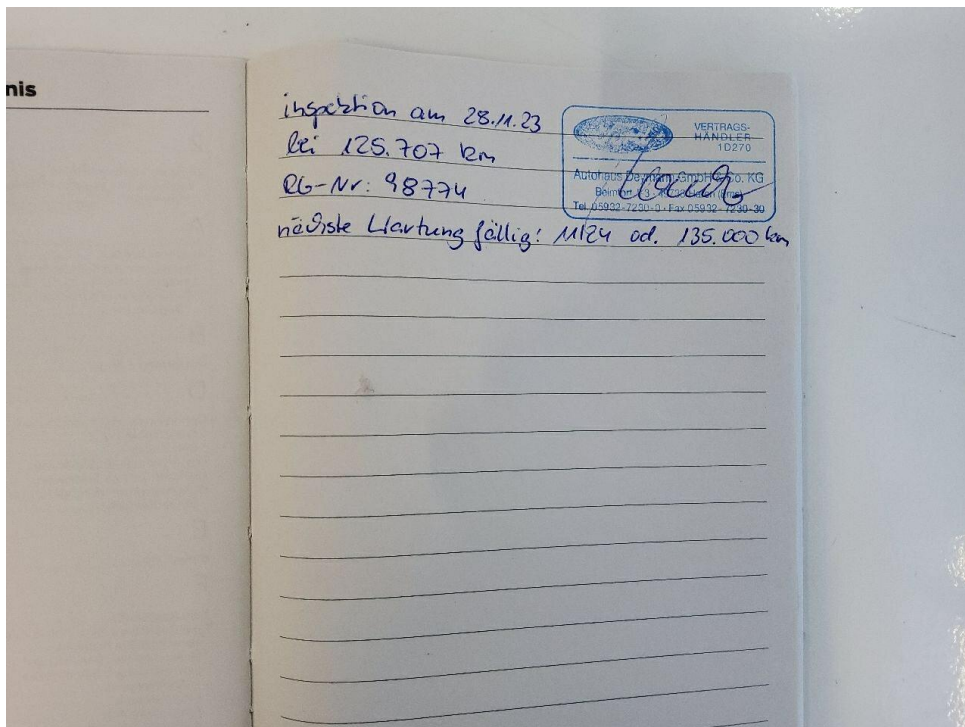 nis
inspektion am 28.11.23
bei 125.707 km
RG-Nr: 98774
nächste Wartung fällig: 11/24 od. 135.000 km
VERTRAGS-
HÄNDLER
1D270
Autohaus GmbH & Co. KG
Tel. 05932-7230-0 · Fax 05932-7230-30